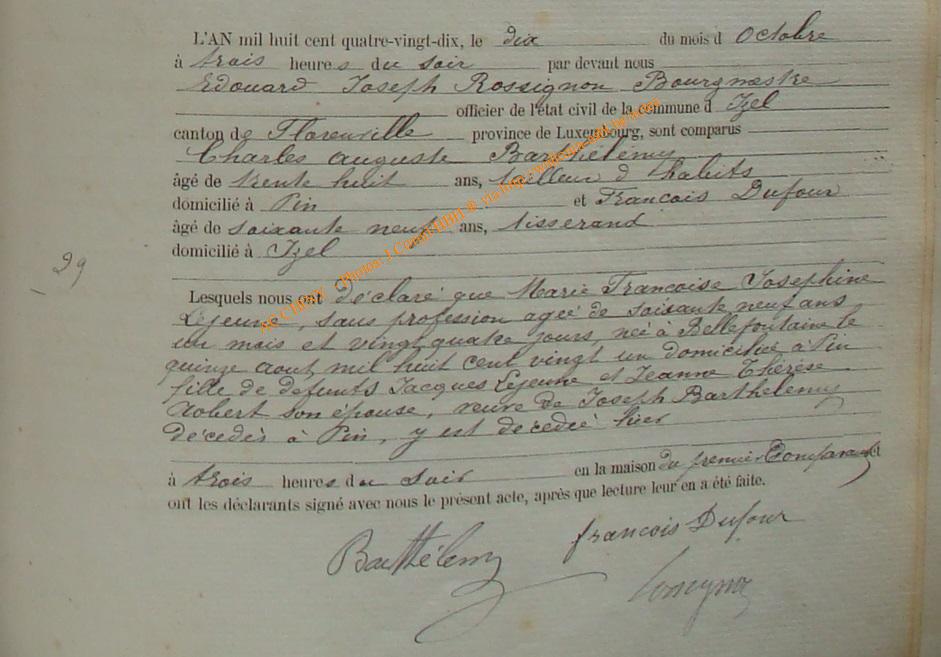 L'AN mil huit cent quatre-vingt-dix, le dix du mois d Octobre
à trois heures du soir par devant nous
Edouard Joseph Rossignon Bourgmestre
officier de l'état civil de la commune d Izel
canton de Florenville province de Luxembourg, sont comparus
Charles Auguste Barthélémy
âgé de trente huit ans, tailleur d'habits
domicilié à Pin et Francois Dufour
âgé de soixante neuf ans, tisserand
domicilié à Izel
29
Lesquels nous ont déclaré que Marie Francoise Josephine
Lejeune, sans profession agée de soixante neuf ans
un mois et vingt quatre jours, née à Bellefontaine le
quinze aout mil huit cent vingt un domiciliée à Pin
fille de defunts Jacques Lejeune et Jeanne Thérèse
Robert son épouse, veuve de Joseph Barthelemy
décedés à Pin, y est decedée hier
à trois heures du soir en la maison du premier Comparant et
ont les déclarants signé avec nous le présent acte, après que lecture leur en a été faite.
Barthélemy francois Dufour